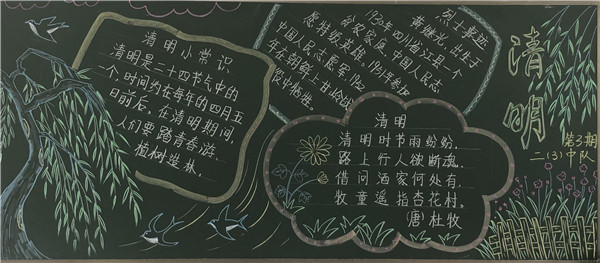 清明小常识
清明是二十四节气中的
一个,时间约在每年的四月五
日前后,在清明期间,
人们要踏青春游、
植树造林。
烈士事迹
黄继光,出生于
1930年四川省江县一个
贫农家庭,中国人民志
愿特级英雄,1951年参加
中国人民志愿军,1952
年在朝鲜上甘岭战
役中牺牲。
清明
清明时节雨纷纷,
路上行人欲断魂,
借问酒家何处有,
牧童遥指杏花村。
(唐)杜牧
清明
第3期
二(3)中队